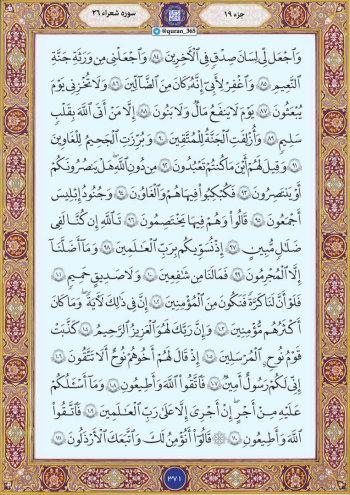 جزء ۱۹
@quran_365
سوره شعراء ۲۶
وَٱجْعَل لِّى لِسَانَ صِدْقٍ فِى ٱلْءَاخِرِينَ ۝٨٤ وَٱجْعَلْنِى مِن وَرَثَةِ جَنَّةِ
ٱلنَّعِيمِ ۝٨٥ وَٱغْفِرْ لِأَبِىٓ إِنَّهُۥ كَانَ مِنَ ٱلضَّآلِّينَ ۝٨٦ وَلَا تُخْزِنِى يَوْمَ
يُبْعَثُونَ ۝٨٧ يَوْمَ لَا يَنفَعُ مَالٌ وَلَا بَنُونَ ۝٨٨ إِلَّا مَنْ أَتَى ٱللَّهَ بِقَلْبٍ
سَلِيمٍ ۝٨٩ وَأُزْلِفَتِ ٱلْجَنَّةُ لِلْمُتَّقِينَ ۝٩٠ وَبُرِّزَتِ ٱلْجَحِيمُ لِلْغَاوِينَ
۝٩١ وَقِيلَ لَهُمْ أَيْنَ مَا كُنتُمْ تَعْبُدُونَ ۝٩٢ مِن دُونِ ٱللَّهِ هَلْ يَنصُرُونَكُمْ
أَوْ يَنتَصِرُونَ ۝٩٣ فَكُبْكِبُوا۟ فِيهَا هُمْ وَٱلْغَاوُۥنَ ۝٩٤ وَجُنُودُ إِبْلِيسَ
أَجْمَعُونَ ۝٩٥ قَالُوا۟ وَهُمْ فِيهَا يَخْتَصِمُونَ ۝٩٦ تَٱللَّهِ إِن كُنَّا لَفِى
ضَلَٰلٍ مُّبِينٍ ۝٩٧ إِذْ نُسَوِّيكُم بِرَبِّ ٱلْعَٰلَمِينَ ۝٩٨ وَمَآ أَضَلَّنَآ
إِلَّا ٱلْمُجْرِمُونَ ۝٩٩ فَمَا لَنَا مِن شَٰفِعِينَ ۝١٠٠ وَلَا صَدِيقٍ حَمِيمٍ ۝١٠١
فَلَوْ أَنَّ لَنَا كَرَّةً فَنَكُونَ مِنَ ٱلْمُؤْمِنِينَ ۝١٠٢ إِنَّ فِى ذَٰلِكَ لَءَايَةً وَمَا كَانَ
أَكْثَرُهُم مُّؤْمِنِينَ ۝١٠٣ وَإِنَّ رَبَّكَ لَهُوَ ٱلْعَزِيزُ ٱلرَّحِيمُ ۝١٠٤ كَذَّبَتْ
قَوْمُ نُوحٍ ٱلْمُرْسَلِينَ ۝١٠٥ إِذْ قَالَ لَهُمْ أَخُوهُمْ نُوحٌ أَلَا تَتَّقُونَ ۝١٠٦
إِنِّى لَكُمْ رَسُولٌ أَمِينٌ ۝١٠٧ فَٱتَّقُوا۟ ٱللَّهَ وَأَطِيعُونِ ۝١٠٨ وَمَآ أَسْـَٔلُكُمْ
عَلَيْهِ مِنْ أَجْرٍ إِنْ أَجْرِىَ إِلَّا عَلَىٰ رَبِّ ٱلْعَٰلَمِينَ ۝١٠٩ فَٱتَّقُوا۟
ٱللَّهَ وَأَطِيعُونِ ۝١١٠ قَالُوٓا۟ أَنُؤْمِنُ لَكَ وَٱتَّبَعَكَ ٱلْأَرْذَلُونَ ۝١١١
٣٧١